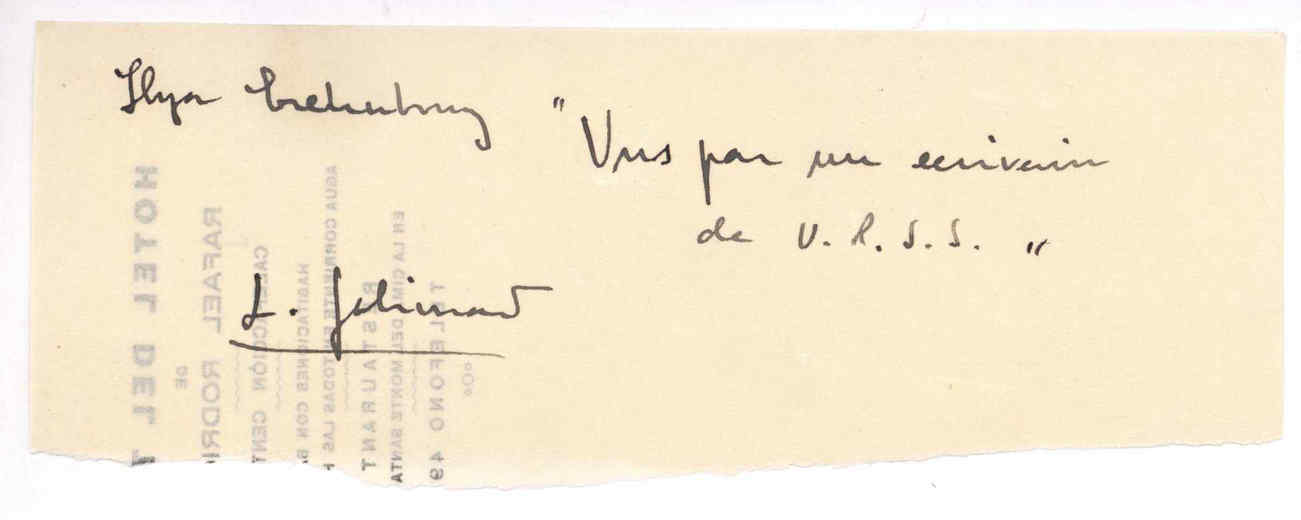 Ilya Erehenburg "Vus par un ecrivain
de U.R.S.S. "
L. Galimard
HOTEL DEL
DE
RAFAEL RODRI
CALEFACCIÓN CENT
HABITACIONES CON B
AGUA CORRIENTE EN TODAS LAS H
RESTAURANT
EN LA CIMA DEL MONTE SANTA
TELEFONO 94